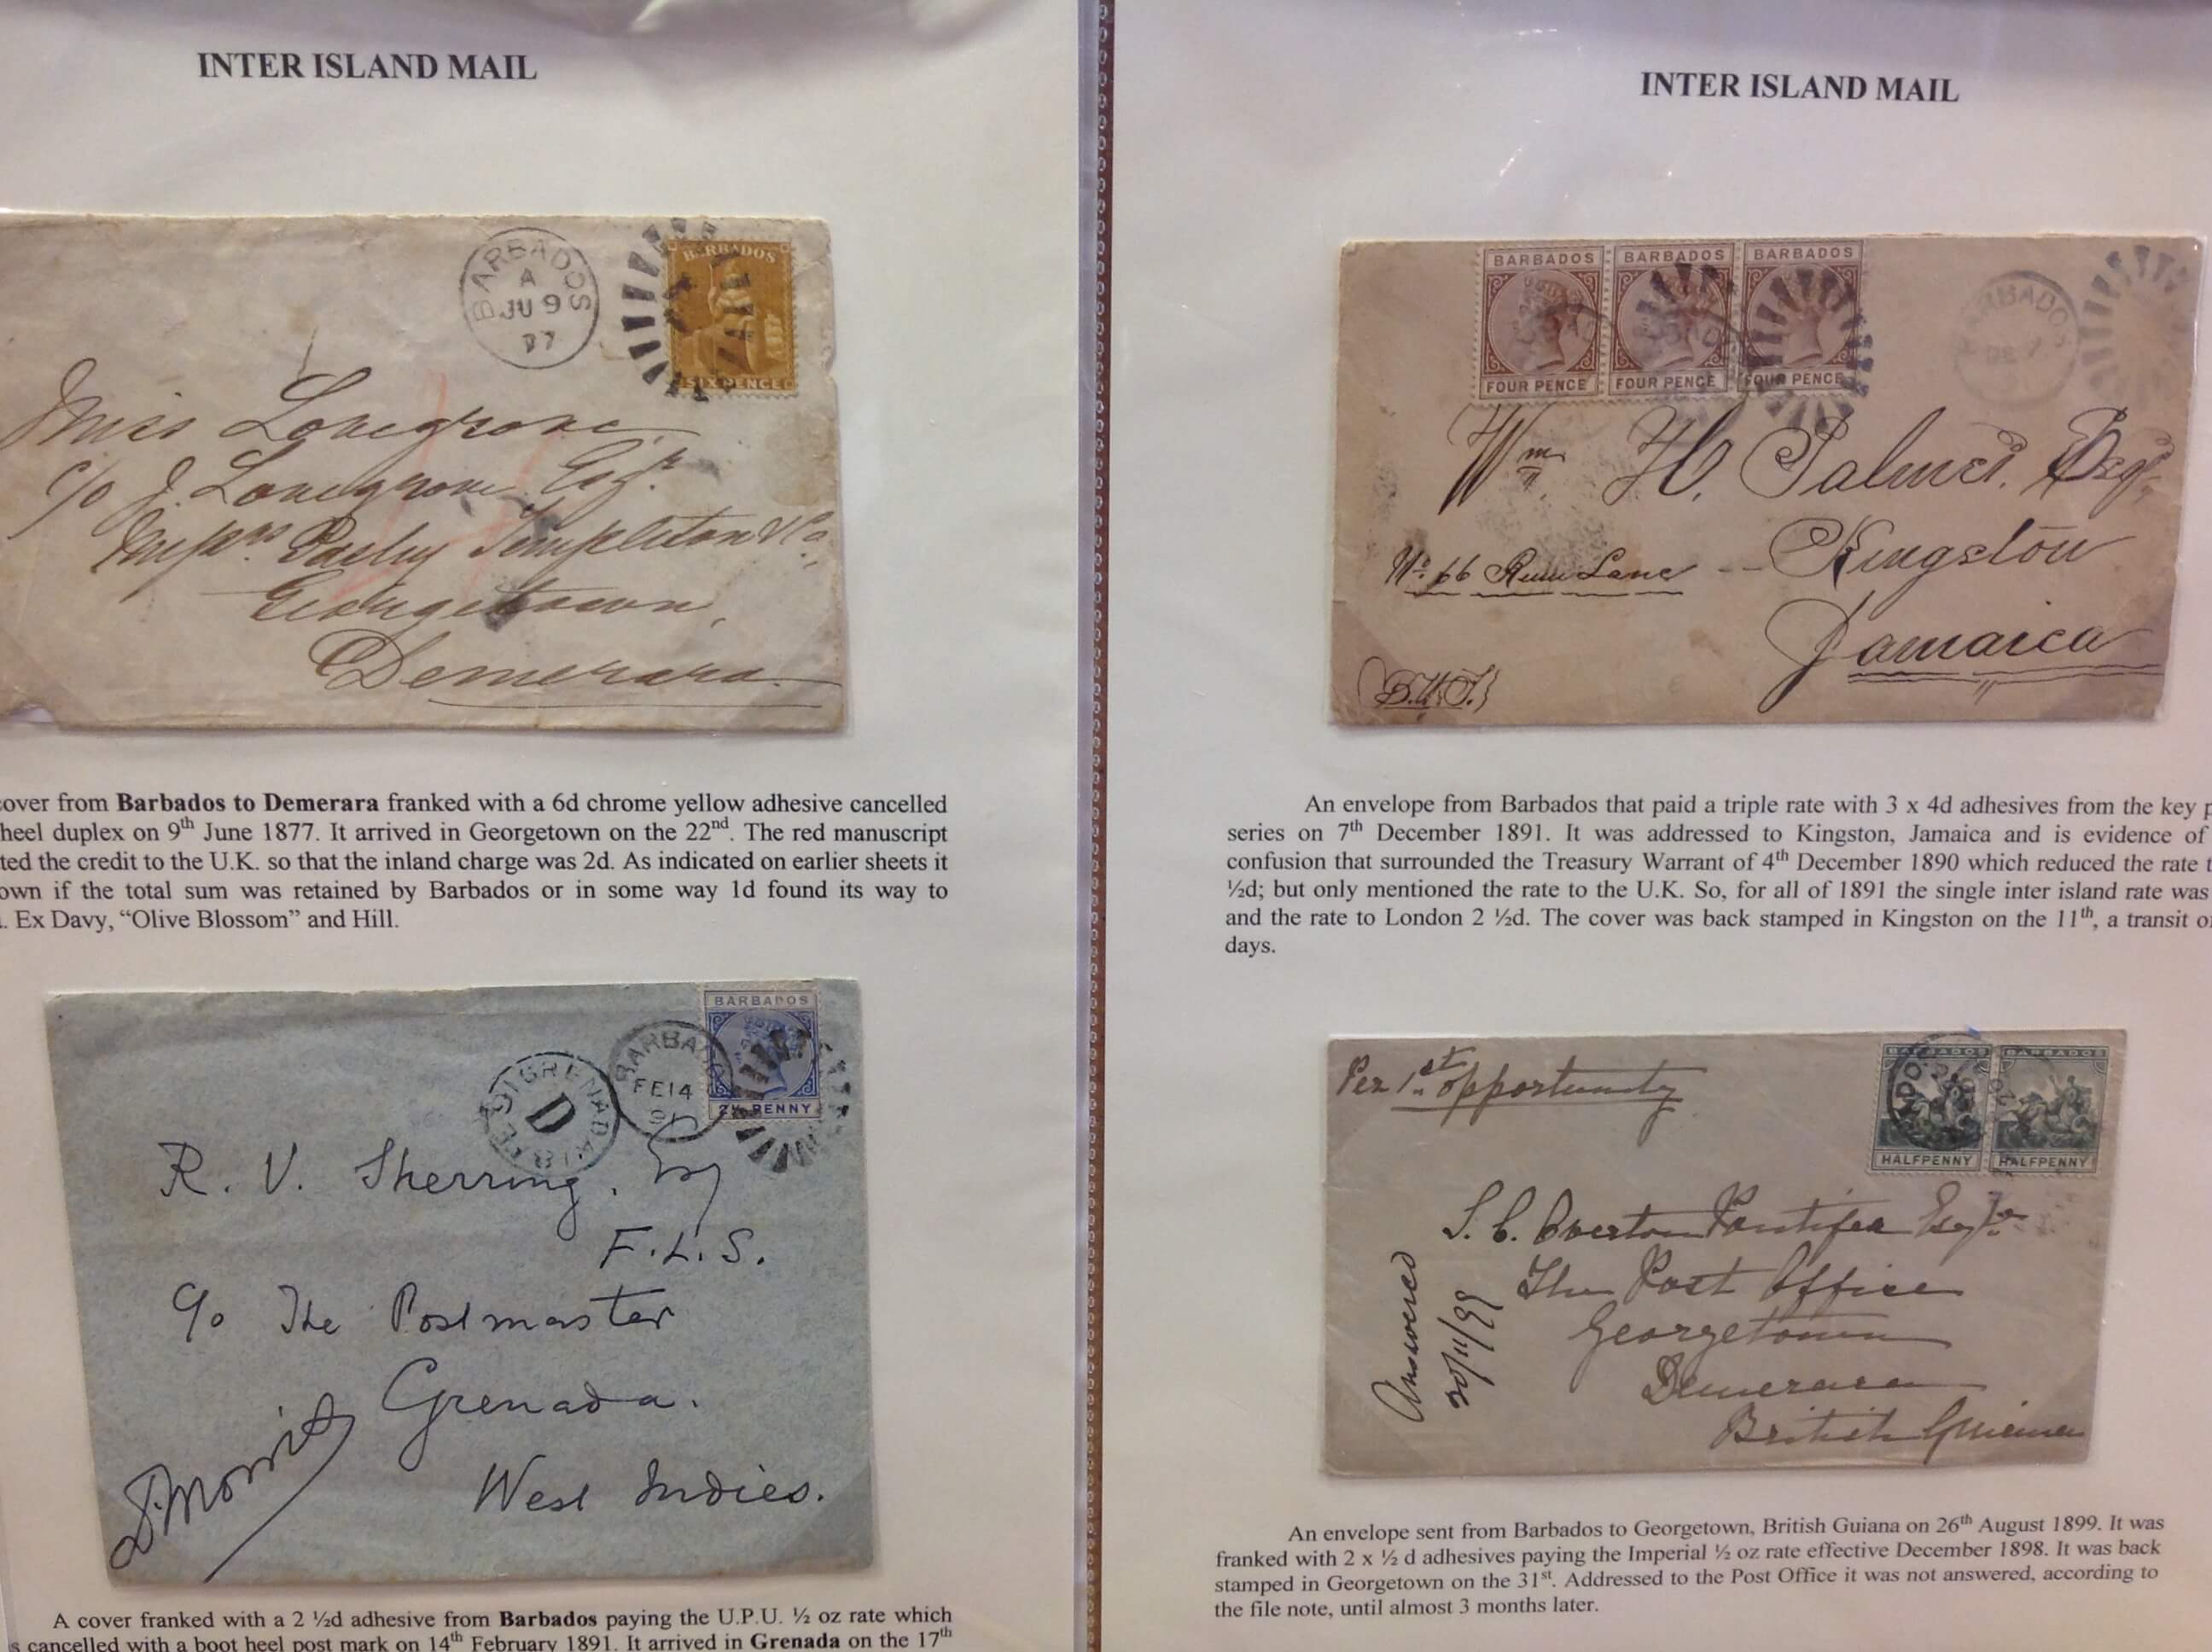 INTER ISLAND MAIL
BARBADOS
A
JU 9
77
BARBADOS
SIX PENCE
Miss Lovegrove
c/o J. Lovegrove Esqr.
Messrs
Templeton & Co,
Georgetown,
Demerara
over from Barbados to Demerara franked with a 6d chrome yellow adhesive cancelled
heel duplex on 9th June 1877. It arrived in Georgetown on the 22nd. The red manuscript
ted the credit to the U.K. so that the inland charge was 2d. As indicated on earlier sheets it
own if the total sum was retained by Barbados or in some way 1d found its way to
. Ex Davy, “Olive Blossom” and Hill.
BARBADOS
2½ PENNY
BARBADOS
FE 14
91
GRENADA
D
R. V. Sherring. Esq
F.L.S.
c/o The Postmaster
Grenada.
West Indies.
D. Morris
A cover franked with a 2 ½d adhesive from Barbados paying the U.P.U. ½ oz rate which
s cancelled with a boot heel post mark on 14th February 1891. It arrived in Grenada on the 17th
INTER ISLAND MAIL
BARBADOS BARBADOS BARBADOS
FOUR PENCE FOUR PENCE FOUR PENCE
BARBADOS
DE 7
Wm H. Palmer. Esq.
No 66 Rum Lane -- Kingston
Jamaica
An envelope from Barbados that paid a triple rate with 3 x 4d adhesives from the key p
series on 7th December 1891. It was addressed to Kingston, Jamaica and is evidence of
confusion that surrounded the Treasury Warrant of 4th December 1890 which reduced the rate t
½d; but only mentioned the rate to the U.K. So, for all of 1891 the single inter island rate was
and the rate to London 2 ½d. The cover was back stamped in Kingston on the 11th, a transit o
days.
Per 1st opportunity
BARBADOS BARBADOS
HALFPENNY HALFPENNY
S. C. Overton Pontifex Esqre
The Post Office
Georgetown
Demerara
British Guiana
Answered
30/11/99
An envelope sent from Barbados to Georgetown, British Guiana on 26th August 1899. It was
franked with 2 x ½ d adhesives paying the Imperial ½ oz rate effective December 1898. It was back
stamped in Georgetown on the 31st. Addressed to the Post Office it was not answered, according to
the file note, until almost 3 months later.